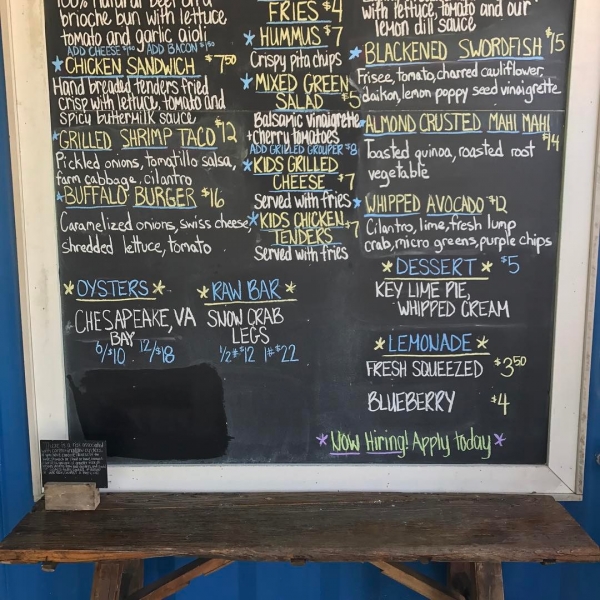 100% natural beef on a
brioche bun with lettuce
tomato and garlic aioli
ADD CHEESE $1.00 ADD BACON $1.50
*CHICKEN SANDWICH $7.50
Hand breaded tenders fried
crisp with lettuce, tomato and
spicy buttermilk sauce
*GRILLED SHRIMP TACO $12
Pickled onions, tomatillo salsa,
farm cabbage, cilantro
*BUFFALO BURGER $16
Caramelized onions, swiss cheese,
shredded lettuce, tomato
FRIES $4
*HUMMUS $7
Crispy pita chips
*MIXED GREEN
SALAD $5
Balsamic vinaigrette
+cherry tomatoes
ADD GRILLED GROUPER $8
*KIDS GRILLED
CHEESE $7
Served with fries
*KIDS CHICKEN
TENDERS $7
Served with fries
with lettuce, tomato and our
lemon dill sauce
*BLACKENED SWORDFISH $15
Frisee, tomato, charred cauliflower,
daikon, lemon poppy seed vinaigrette
*ALMOND CRUSTED MAHI MAHI
$14
Toasted quinoa, roasted root
vegetable
*WHIPPED AVOCADO $12
Cilantro, lime, fresh lump
crab, micro greens, purple chips
*OYSTERS*
CHESAPEAKE, VA
BAY
6/$10 12/$18
*RAW BAR*
SNOW CRAB
LEGS
1/2# $12 1# $22
*DESSERT* $5
KEY LIME PIE,
WHIPPED CREAM
*LEMONADE*
FRESH SQUEEZED $3.50
BLUEBERRY $4
*Now Hiring! Apply today*